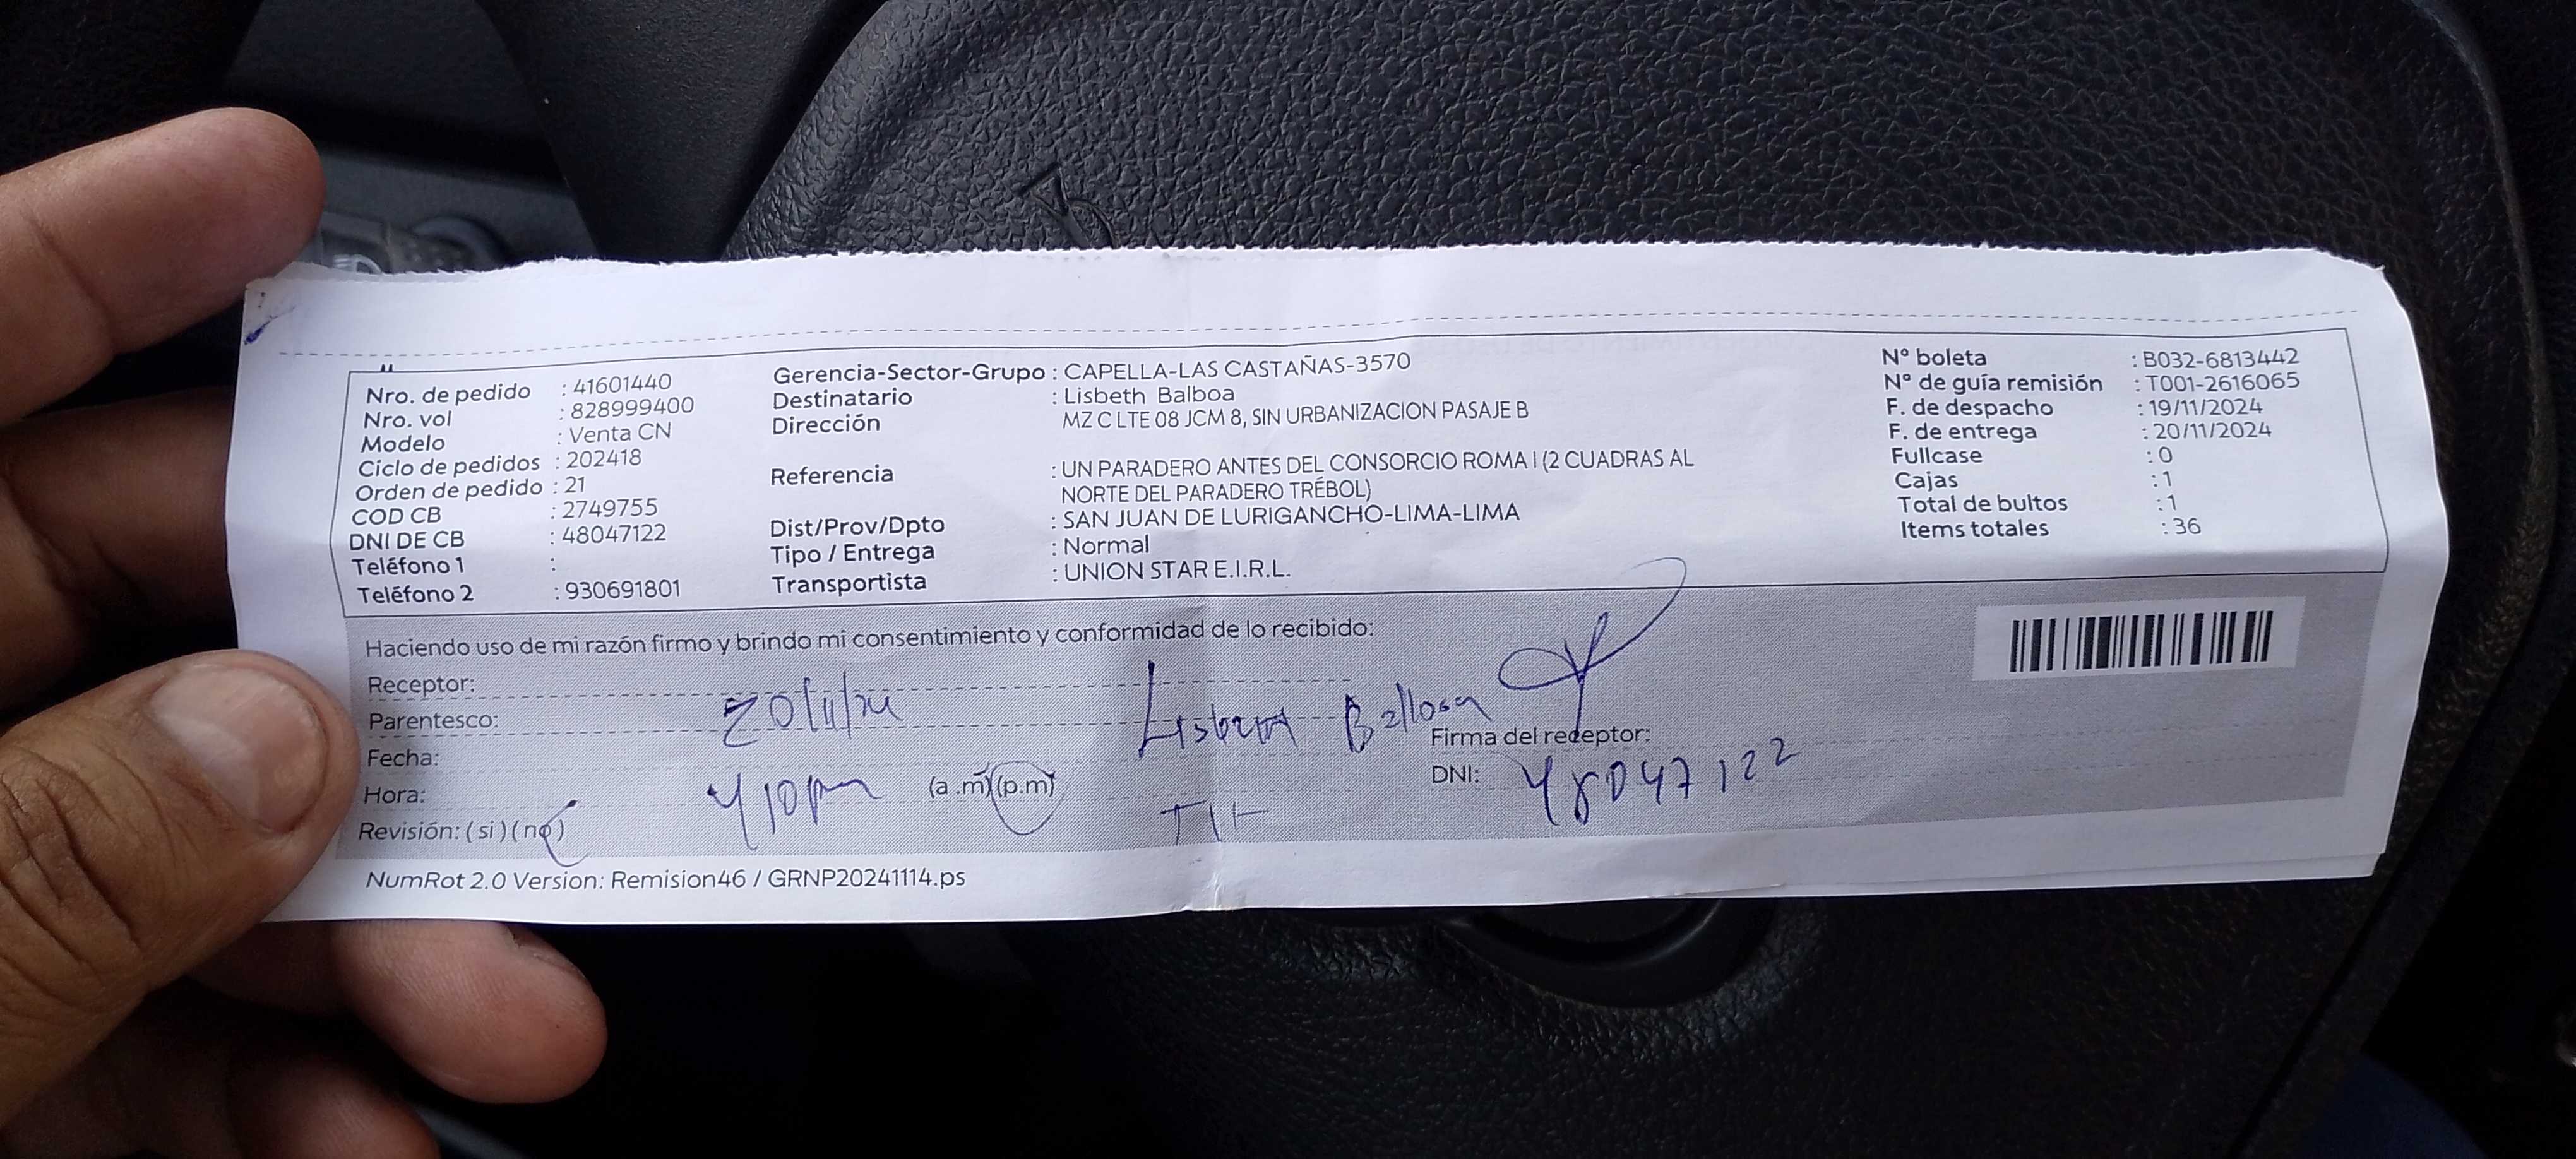 Nro. de pedido : 41601440
Nro. vol : 828999400
Modelo : Venta CN
Ciclo de pedidos : 202418
Orden de pedido : 21
COD CB : 2749755
DNI DE CB : 48047122
Teléfono 1 :
Teléfono 2 : 930691801
Gerencia-Sector-Grupo : CAPELLA-LAS CASTAÑAS-3570
Destinatario : Lisbeth Balboa
Dirección MZ C LTE 08 JCM 8, SIN URBANIZACION PASAJE B
Referencia : UN PARADERO ANTES DEL CONSORCIO ROMA I (2 CUADRAS AL
NORTE DEL PARADERO TRÉBOL)
Dist/Prov/Dpto : SAN JUAN DE LURIGANCHO-LIMA-LIMA
Tipo / Entrega : Normal
Transportista : UNION STAR E.I.R.L.
N° boleta : B032-6813442
N° de guía remisión : T001-2616065
F. de despacho : 19/11/2024
F. de entrega : 20/11/2024
Fullcase : 0
Cajas : 1
Total de bultos : 1
Items totales : 36
Haciendo uso de mi razón firmo y brindo mi consentimiento y conformidad de lo recibido:
Receptor:
Parentesco: 20/11/24
Fecha:
Hora: 410pm (a.m)(p.m)
Revisión: (si) (no)
Firma del receptor:
DNI: 48047122
NumRot 2.0 Version: Remision46 / GRNP20241114.ps